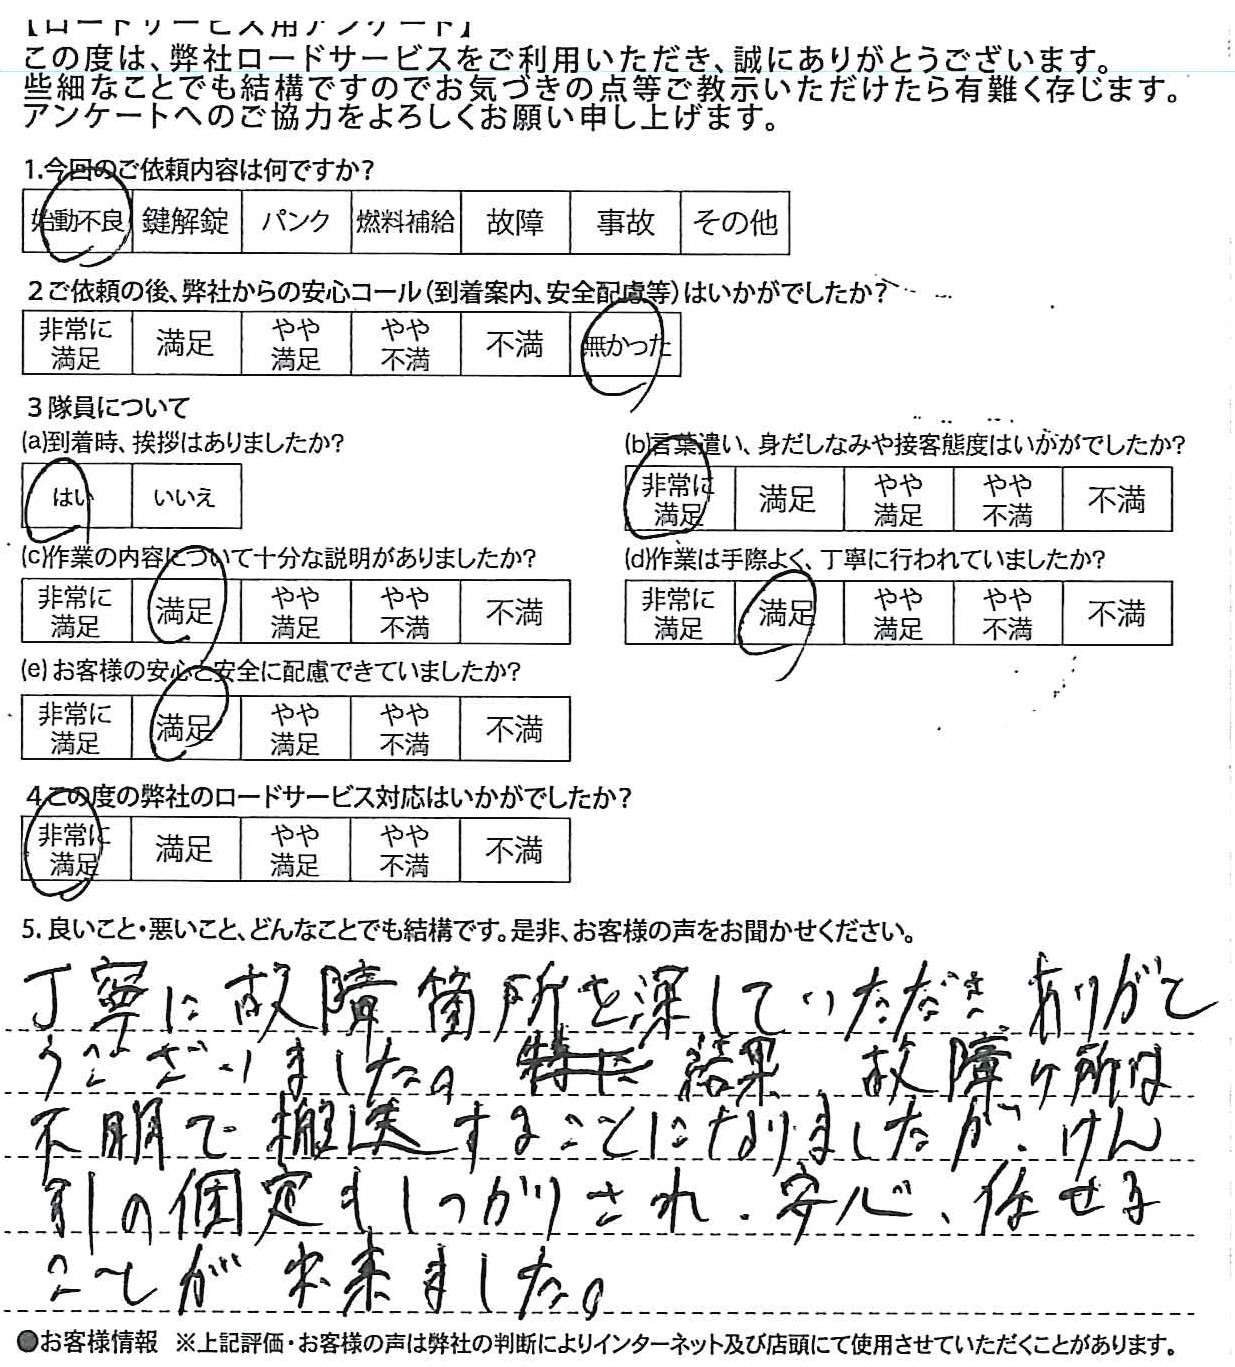 【ロードサービス用アンケート】
この度は、弊社ロードサービスをご利用いただき、誠にありがとうございます。
些細なことでも結構ですのでお気づきの点等ご教示いただけたら有難く存じます。
アンケートへのご協力をよろしくお願い申し上げます。
1.今回のご依頼内容は何ですか?
始動不良 鍵解錠 パンク 燃料補給 故障 事故 その他
2ご依頼の後、弊社からの安心コール(到着案内、安全配慮等)はいかがでしたか?
非常に満足 満足 やや満足 やや不満 不満 無かった
3隊員について
(a)到着時、挨拶はありましたか?
はい いいえ
(b)言葉遣い、身だしなみや接客態度はいかがでしたか?
非常に満足 満足 やや満足 やや不満 不満
(c)作業の内容について十分な説明がありましたか?
非常に満足 満足 やや満足 やや不満 不満
(d)作業は手際よく、丁寧に行われていましたか?
非常に満足 満足 やや満足 やや不満 不満
(e)お客様の安心と安全に配慮できていましたか?
非常に満足 満足 やや満足 やや不満 不満
4この度の弊社のロードサービス対応はいかがでしたか?
非常に満足 満足 やや満足 やや不満 不満
5.良いこと・悪いこと、どんなことでも結構です。是非、お客様の声をお聞かせください。
丁寧に故障箇所を深していただきありがと
うございました。特に結果、故障ヶ所は
不明で搬送することになりましたが、けん
引の固定もしっかりされ、安心、任せる
ことが出来ました。
●お客様情報 ※上記評価・お客様の声は弊社の判断によりインターネット及び店頭にて使用させていただくことがあります。